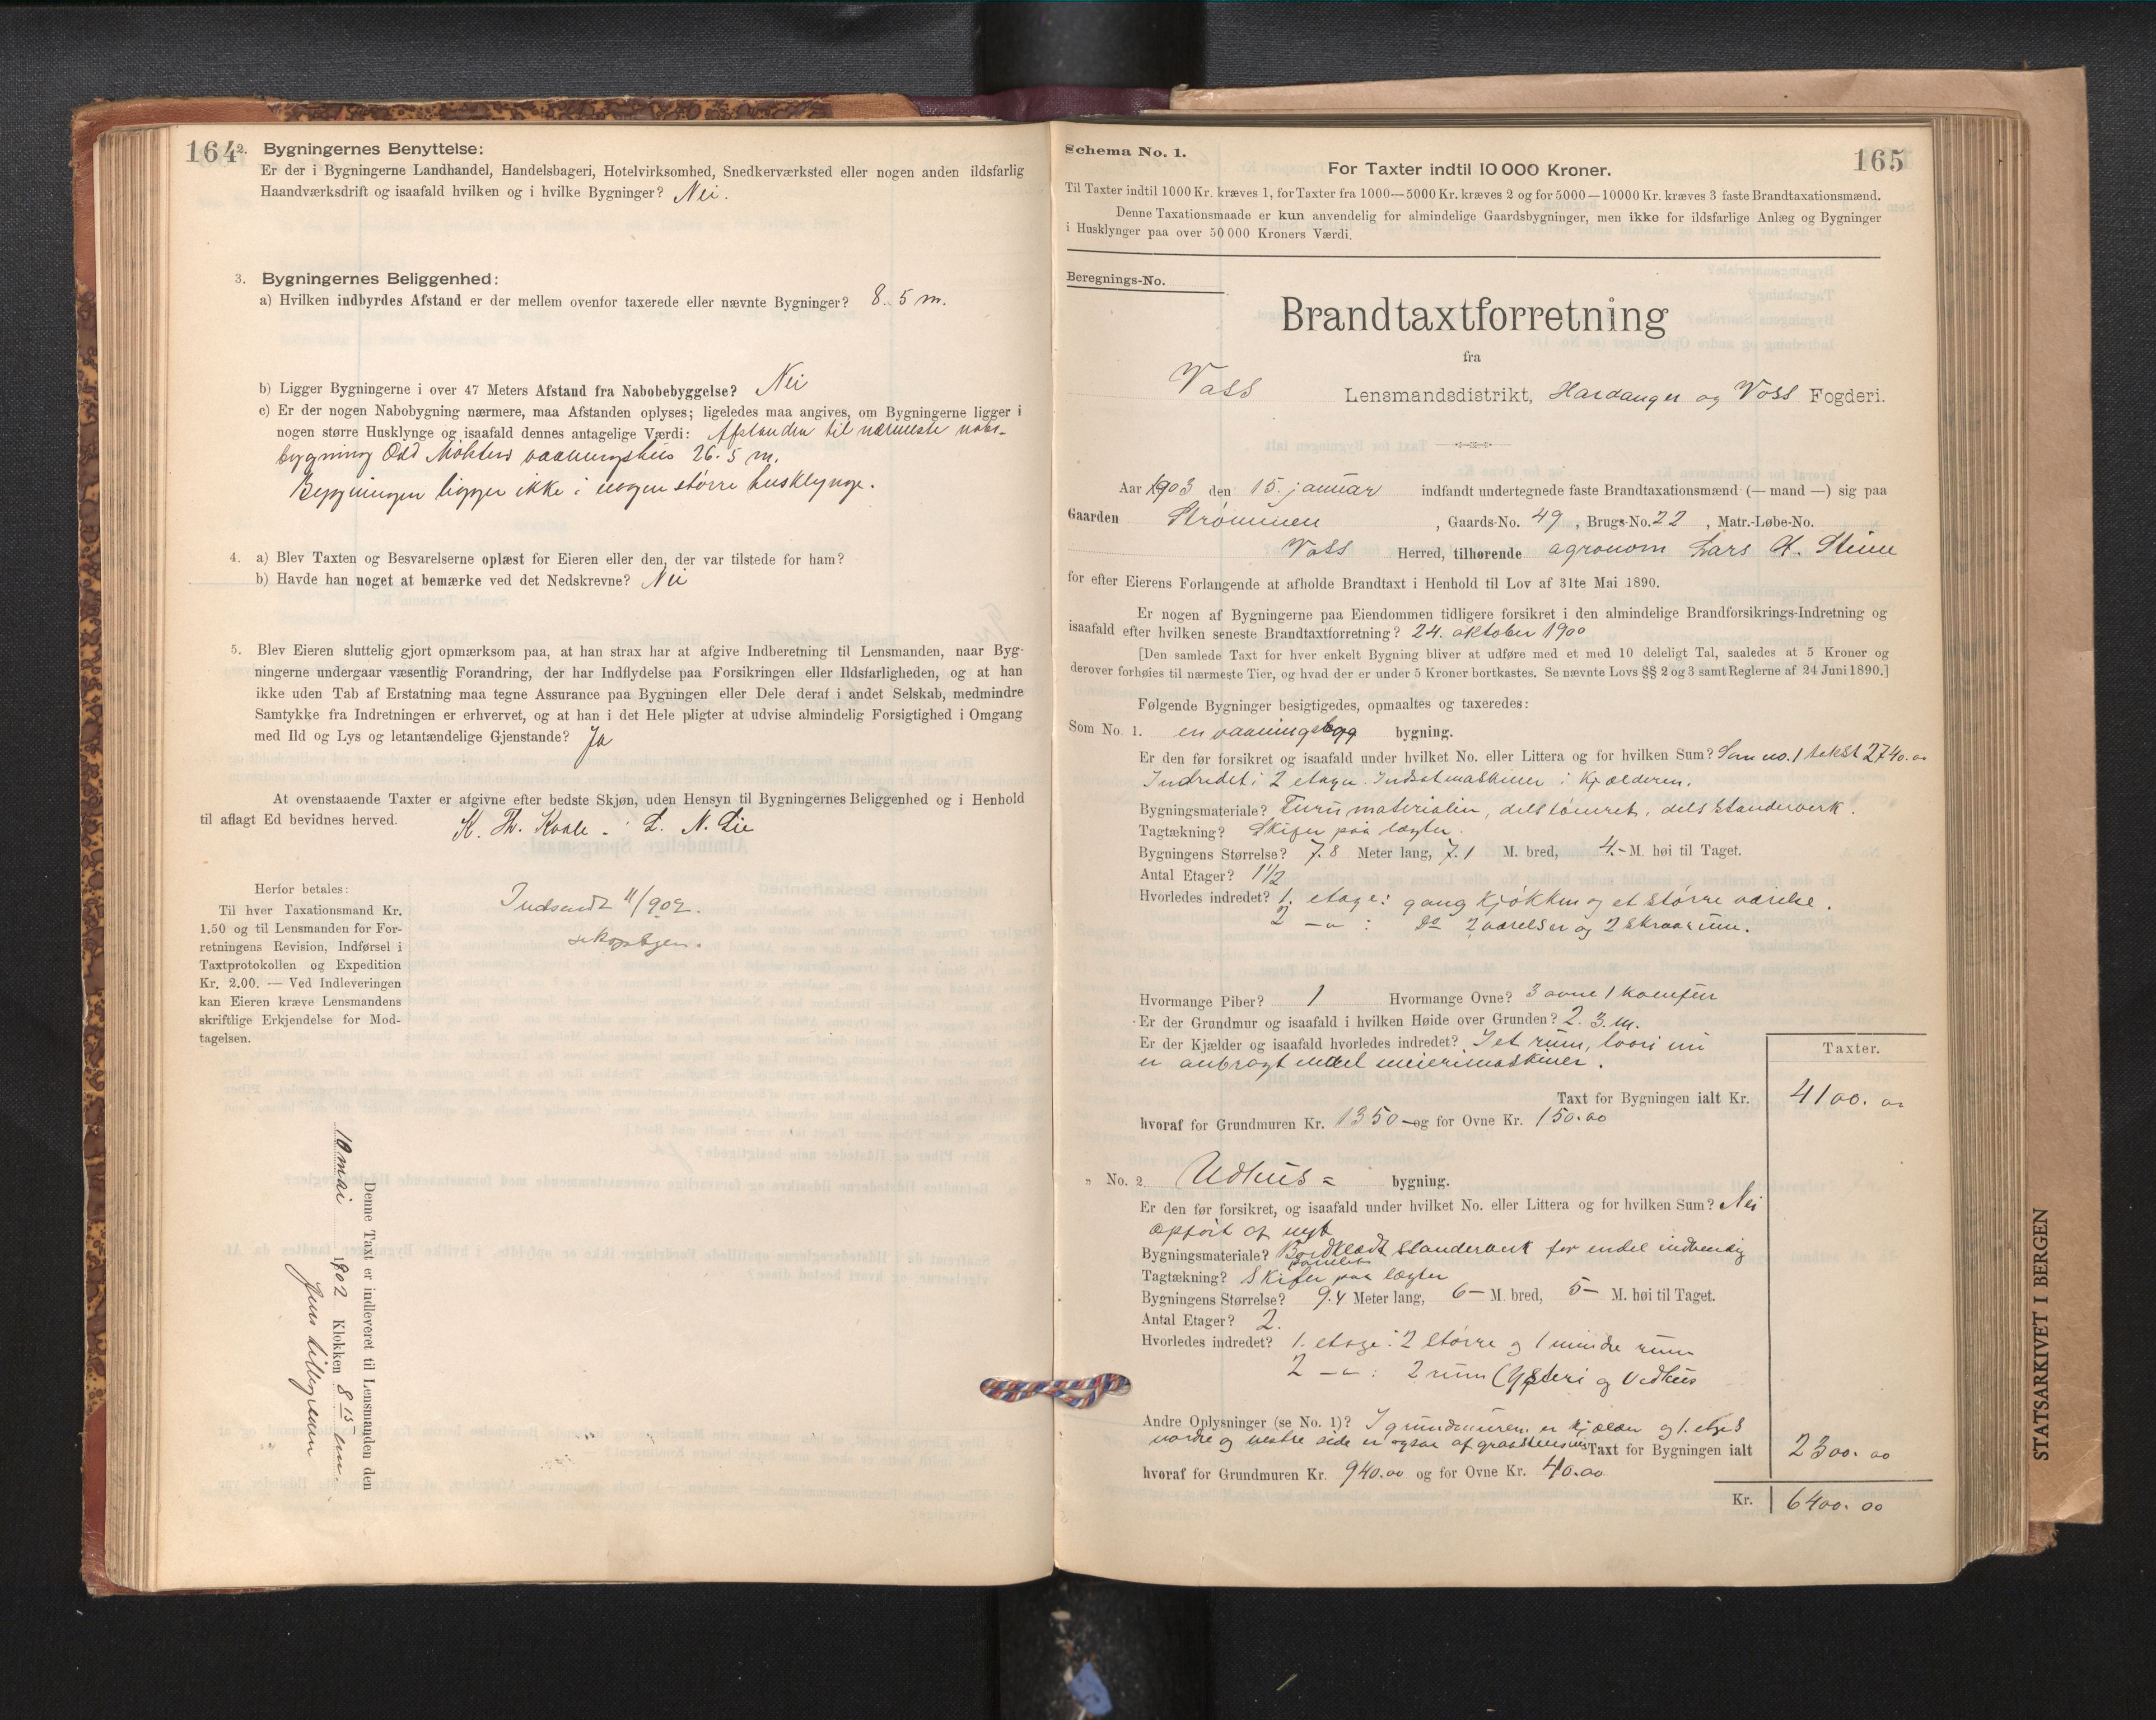 164
2. Bygningernes Benyttelse:
Er der i Bygningerne Landhandel, Handelsbageri, Hotelvirksomhed, Snedkerværksted eller nogen anden ildsfarlig
Haandværksdrift og isaafald hvilken og i hvilke Bygninger? Nei.
3. Bygningernes Beliggenhed:
a) Hvilken indbyrdes Afstand er der mellem ovenfor taxerede eller nævnte Bygninger? 8.5 m.
b) Ligger Bygningerne i over 47 Meters Afstand fra Nabobebyggelse? Nei
c) Er der nogen Nabobygning nærmere, maa Afstanden oplyses; ligeledes maa angives, om Bygningerne ligger i
nogen større Husklynge og isaafald dennes antagelige Værdi: Afstanden til nærmeste nabo-
bygning Odd vaaningshus 26.5 m.
Bygningen ligger ikke i nogen større husklynge.
4. a) Blev Taxten og Besvarelserne oplæst for Eieren eller den, der var tilstede for ham?
b) Havde han noget at bemærke ved det Nedskrevne? Nei
5. Blev Eieren sluttelig gjort opmærksom paa, at han strax har at afgive Indberetning til Lensmanden, naar Byg-
ningerne undergaar væsentlig Forandring, der har Indflydelse paa Forsikringen eller Ildsfarligheden, og at han
ikke uden Tab af Erstatning maa tegne Assurance paa Bygningen eller Dele deraf i andet Selskab, medmindre
Samtykke fra Indretningen er erhvervet, og at han i det Hele pligter at udvise almindelig Forsigtighed i Omgang
med Ild og Lys og letantændelige Gjenstande? Ja
At ovenstaaende Taxter er afgivne efter bedste Skjøn, uden Hensyn til Bygningernes Beliggenhed og i Henhold
til aflagt Ed bevidnes herved. K. Th. Kvale. L. N. Lie
Herfor betales:
Til hver Taxationsmand Kr.
1.50 og til Lensmanden for For-
retningens Revision, Indførsel i
Taxtprotokollen og Expedition
Kr. 2.00. — Ved Indleveringen
kan Eieren kræve Lensmandens
skriftlige Erkjendelse for Mod-
tagelsen.
Indsendt 11/902.
Denne Taxt er indleveret til Lensmanden den
10 mai 1902 Klokken 8 15 em.
Jens Lillegraven
165
Schema No. 1.
For Taxter indtil 10 000 Kroner.
Til Taxter indtil 1000 Kr. kræves 1, for Taxter fra 1000—5000 Kr. kræves 2 og for 5000—10000 Kr. kræves 3 faste Brandtaxationsmænd.
Denne Taxationsmaade er kun anvendelig for almindelige Gaardsbygninger, men ikke for ildsfarlige Anlæg og Bygninger
i Husklynger paa over 50 000 Kroners Værdi.
Beregnings-No.
Brandtaxtforretning
fra
Voss Lensmandsdistrikt, Hardanger og Voss Fogderi.
Aar 1903 den 15. januar indfandt undertegnede faste Brandtaxationsmænd (— mand —) sig paa
Gaarden Strømmen, Gaards-No. 49, Brugs-No. 22, Matr.-Løbe-No.
Voss Herred, tilhørende agronom Lars
for efter Eierens Forlangende at afholde Brandtaxt i Henhold til Lov af 31te Mai 1890.
Er nogen af Bygningerne paa Eiendommen tidligere forsikret i den almindelige Brandforsikrings-Indretning og
isaafald efter hvilken seneste Brandtaxtforretning? 24. oktober 1900
[Den samlede Taxt for hver enkelt Bygning bliver at udføre med et med 10 deleligt Tal, saaledes at 5 Kroner og
derover forhøies til nærmeste Tier, og hvad der er under 5 Kroner bortkastes. Se nævnte Lovs §§ 2 og 3 samt Reglerne af 24 Juni 1890.]
Følgende Bygninger besigtigedes, opmaaltes og taxeredes:
Som No. 1. en vaaningsbygg bygning.
Er den før forsikret og isaafald under hvilket No. eller Littera og for hvilken Sum? Som no. 1 takst 2740.00
Indredet i 2 etage. Indsat maskiner i Kjælderen.
Bygningsmateriale? Furu materialier, dels tømret, dels standerverk.
Tagtækning? Skifer paa lægter.
Bygningens Størrelse? 7.8 Meter lang, 7.1 M. bred, 4.- M. høi til Taget.
Antal Etager? 1 1/2
Hvorledes indredet? 1. etage: gang kjøkken og et større værelse.
2 — " — : Do 2 værelser og 2 skraarum.
Hvormange Piber? 1 Hvormange Ovne? 3 ovne 1 komfur
Er der Grundmur og isaafald i hvilken Høide over Grunden? 2.3.m.
Er der Kjælder og isaafald hvorledes indredet? I et rum, hvori nu
er anbragt endel meierimaskiner.
Taxter.
Taxt for Bygningen ialt Kr. 4100.00
hvoraf for Grundmuren Kr. 1350 — og for Ovne Kr. 150.00
" No. 2. Udhus = bygning.
Er den før forsikret, og isaafald under hvilket No. eller Littera og for hvilken Sum? Nei
opført af nyt
Bygningsmateriale? Bordklædt standerverk for endel indvendig
panelet
Tagtækning? Skifer paa lægter
Bygningens Størrelse? 9.4 Meter lang, 6 — M. bred, 5 — M. høi til Taget.
Antal Etager? 2.
Hvorledes indredet? 1. etage: 2 større og 1 mindre rum
2 — " — : 2 rum (Ysteri og Vedhus
Andre Oplysninger (se No. 1)? I grundmuren er kjælder og 1. etages
nordre og vestre side er ogsaa af graastensmur Taxt for Bygningen ialt 2300.00
hvoraf for Grundmuren Kr. 940.00 og for Ovne Kr. 40.00
Kr. 6400.00
STATSARKIVET I BERGEN